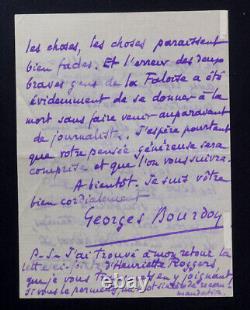 les choses, les choses paraissent
bien fades. Et l'erreur des deux
braves gens de la Falaise a été
évidemment de se donner à la
mort sans faire venir auparavant
de journaliste. J'espère pourtant
que votre pensée généreuse sera
comprise et que l'on vous suivra.
A bientôt. Je suis vôtre
bien cordialement
Georges Bourdon
P.S. J'ai trouvé à mon retour la
lettre ci-jointe d'Henriette Roggers
que je vous transmets en y joignant
si vous le permettez,
mandation.
© 123fab.com